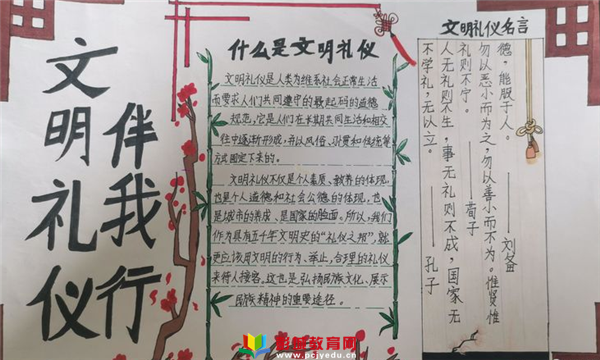 文明礼仪
伴我行
什么是文明礼仪
文明礼仪是人类为维系社会正常生活
而要求人们共同遵守的最起码的道德
规范,它是人们在长期共同生活和相交
往中逐渐形成,并以风俗、习惯和传统等
方式固定下来的。
文明礼仪不仅是个人素质、教养的体现,
也是个人道德和社会公德的体现,也
是城市的 、是国家的脸面。所以,我们
作为具有五千年文明史的“礼仪之邦”,就
更应该用文明的行为、举止,合理的礼仪
来待人接客。这也是弘扬民族文化、展示
民族精神的重要途径。
文明礼仪名言
不学礼,无以立。
——孔子
人无礼则不生,事无礼则不成,国家无
礼则不宁。
——荀子
勿以恶小而为之,勿以善小而不为。惟贤惟
德,能服于人。
——刘备
教育网
www.pcjyedu.cn